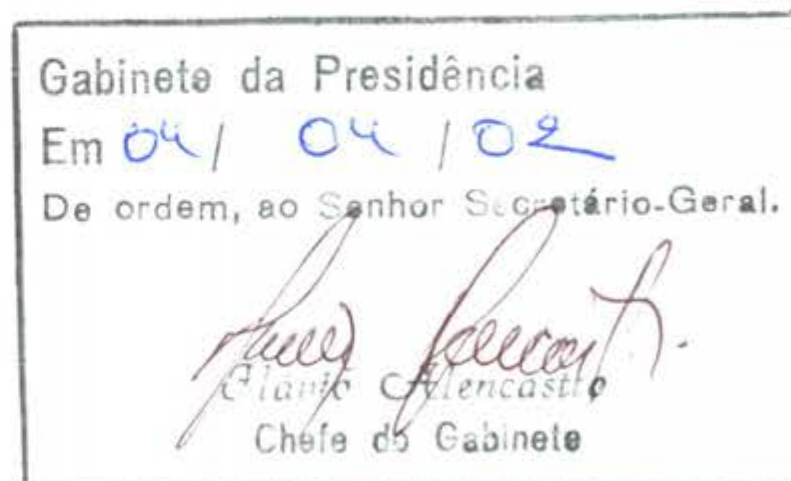 Gabinete da Presidência
Em 04/ 04 / 02
De ordem, ao Senhor Secretário-Geral.
Flávio Alencastro
Chefe do Gabinete